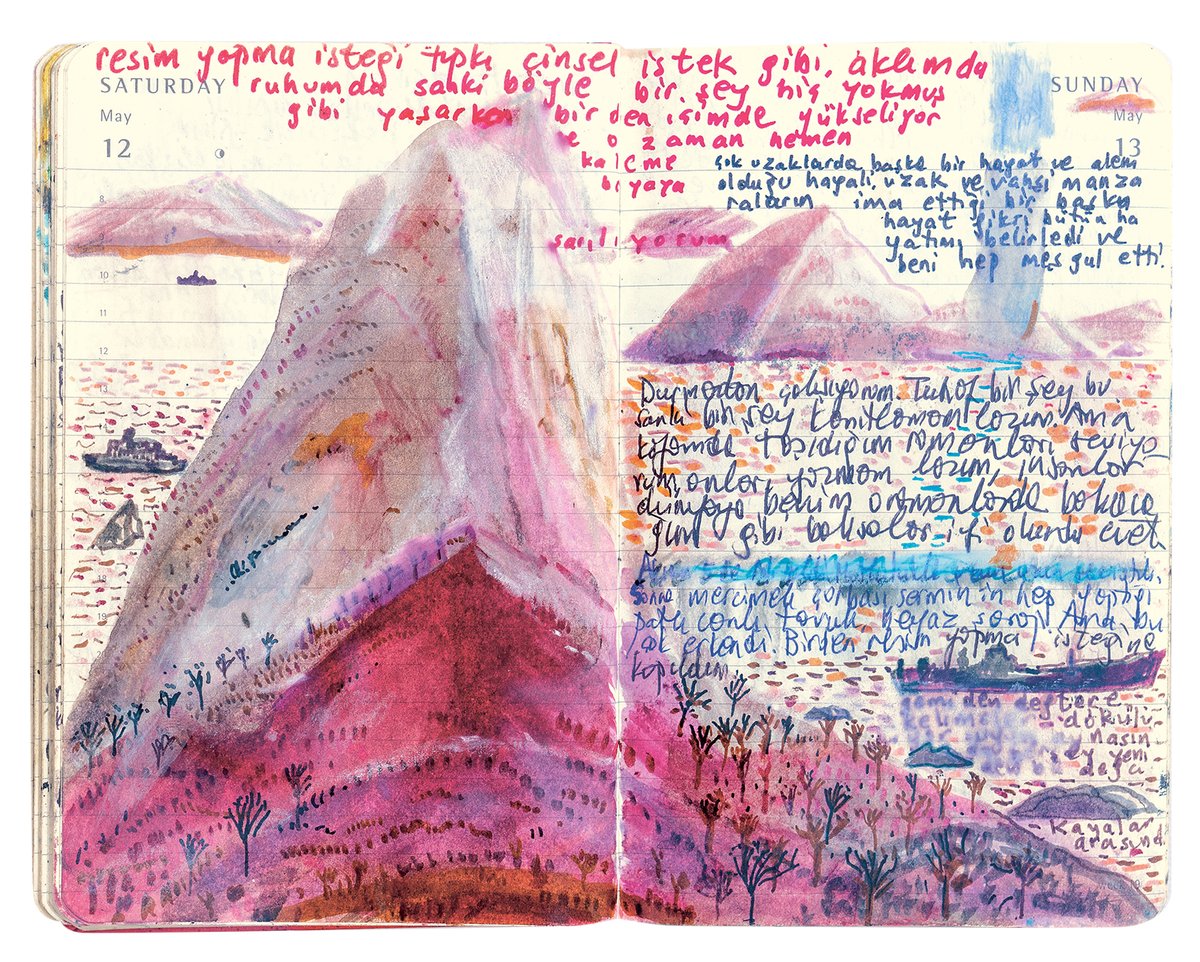 resim yapma isteği tıpkı cinsel istek gibi, aklımda
SATURDAY
ruhumda sanki böyle bir şey hiç yokmuş
SUNDAY
May
gibi yaşarken birden içimde yükseliyor
May
12
ve o zaman hemen
13
kaleme
boyaya
sarılıyorum
çok uzaklarda başka bir hayat ve alem
olduğu hayali, uzak ve vahşi manza
raların ima ettiği bir başka
hayat fikri bütün ha
yatımı belirledi ve
beni hep meşgul etti.
8
9
10
11
12
13
Durmadan çalışıyorum. Tuhaf bir şey bu
sanki bir şey kanıtlamam lazım. Ama
kafamda taşıdığım romanları seviyo
rum onları yazmam lazım, insanlar
dünyaya benim romanlarda bakaca
ğım gibi baksalar iyi olurdu evet
Sonra mercimek çorbası Şermin'in hep yaptığı
patlıcanlı tavuk beyaz şarap. Ama bu
çok erkendi. Birden resim yapma isteğine
kapıldım
19
gemiden deftere
kelimeler dökülü
yeni
Kayalar
arasınd